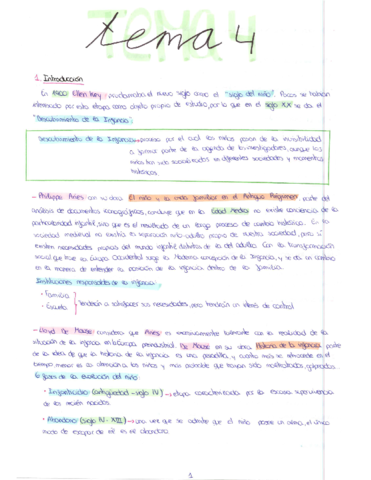 tema 4
1. Introducción
En 1900 Ellen Key proclamaba el nuevo siglo como el "siglo del niño". Pocos se habían
interesado por esta etapa como objeto propio de estudio, por lo que en el siglo XX se da el
"Descubrimiento de la Infancia":
Descubrimiento de la Infancia → proceso por el cual los niños pasan de la invisibilidad
a formar parte de la agenda de los investigadores, aunque los
niños han sido en diferentes sociedades y momentos
históricos.
- Philippe Aries con su obra El niño y la vida familiar en el Antiguo Régimen parte del
análisis de documentos iconográficos, concluye que en la Edad Media no existe conciencia de la
particularidad infantil, sino que es el resultado de un largo proceso de cambio histórico. En la
sociedad medieval no existía la separación niño-adulto propia de nuestra sociedad, pero sí
existen necesidades propias del mundo infantil distintas de la del adulto. Con la transformación
social que tiene la Europa Occidental surge la moderna concepción de la Infancia, y se da un cambio
en la manera de entender la posición de la infancia dentro de la familia.
Instituciones responsables de la infancia:
· Familia
· Escuela
tenderán a satisfacer sus necesidades, pero tendrán un interés de control
- Lloyd De Mause considera que Aries es excesivamente tolerante con la realidad de la
situación de la infancia en la Europa preindustrial. De Mause en su obra Historia de la infancia parte
de la idea de que la historia de la infancia es una pesadilla, y cuanto más se retrocede en el
tiempo menor es la atención a los niños y más probable que hayan sido maltratados, golpeados.
6 fases de la evolución del niño:
· Infanticidio (antigüedad - siglo IV) → etapa caracterizada por la escasa supervivencia
de los recién nacidos.
· Abandono (siglo IV - XIII) → una vez que se admite que el niño posee un alma, el único
modo de escapar de él es el abandono.
1